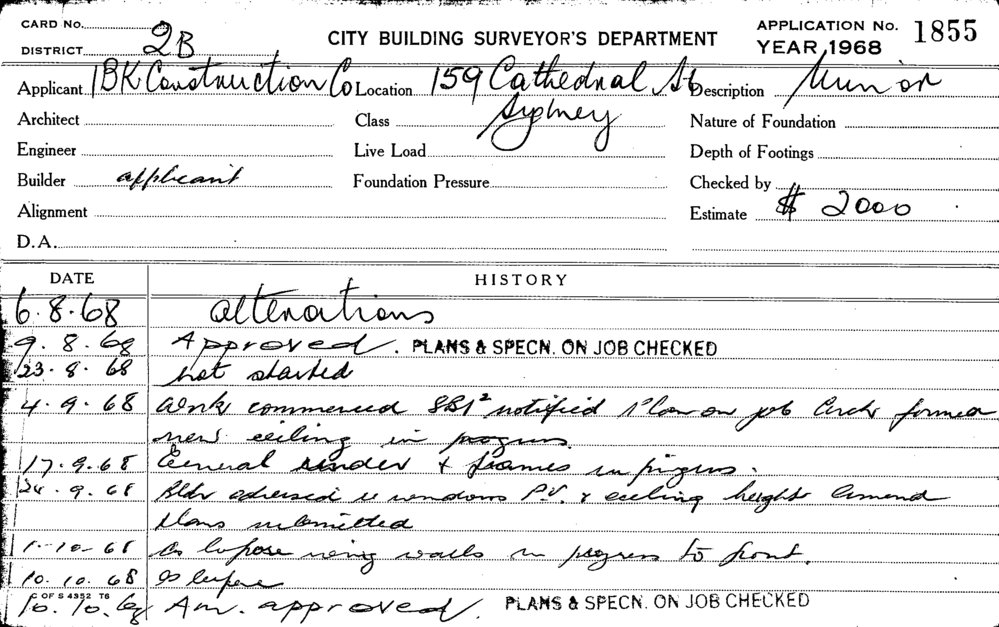 CARD No. APPLICATION No. 1855
DISTRICT 2B CITY BUILDING SURVEYOR'S DEPARTMENT YEAR 1968
Applicant BK Construction Co Location 159 Cathedral St Description Minor
Architect Class Sydney Nature of Foundation
Engineer Live Load Depth of Footings
Builder applicant Foundation Pressure Checked by
Alignment Estimate $ 2000
D.A.
DATE HISTORY
6.8.68 alterations
9.8.68 Approved. PLANS & SPECN. ON JOB CHECKED
23.8.68 not started
4.9.68 Work commenced notified Plan on job formed
new ceiling in progress
17.9.68 General render & frames in progress.
24.9.68 Bldr advised re windows P.V. & ceiling height Amend
Plans submitted
1.10.68 As before walls in progress to front.
10.10.68 as before
C OF S 4352 T6
16.10.68 Am. approved. PLANS & SPECN. ON JOB CHECKED